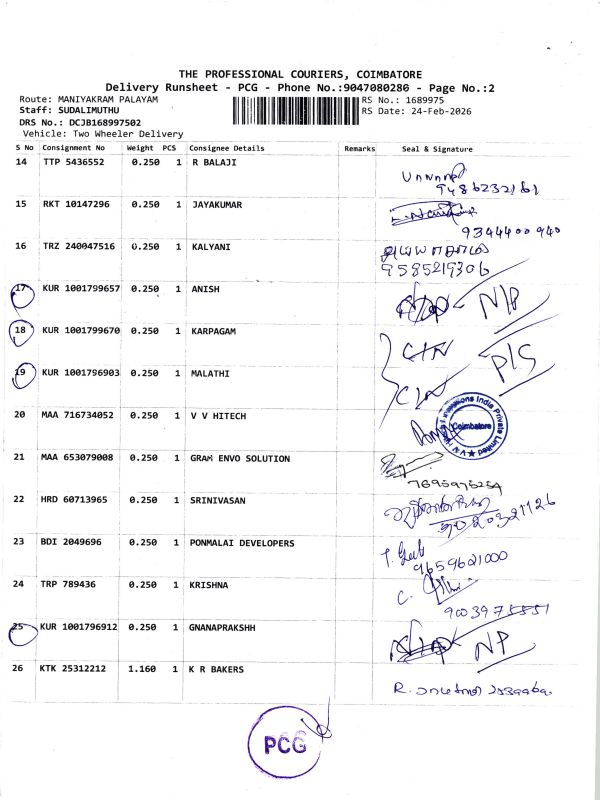 THE PROFESSIONAL COURIERS, COIMBATORE
Delivery Runsheet - PCG - Phone No.:9047080280 - Page No.:2
Route: MANIYAKRAM PALAYAM
RS No.: 1689975
Staff: SUDALIMUTHU
RS Date: 24-Feb-2026
DRS No.: DCJB168997502
Vehicle: Two Wheeler Delivery
S No Consignment No Weight PCS Consignee Details Remarks Seal & Signature
14 TTP 5436552 0.250 1 R BALAJI
9486232161
15 RKT 10147296 0.250 1 JAYAKUMAR
9344400940
16 TRZ 240047516 0.250 1 KALYANI
9585219306
17 KUR 1001799657 0.250 1 ANISH N/P
18 KUR 1001799670 0.250 1 KARPAGAM
P/S
19 KUR 1001796903 0.250 1 MALATHI
20 MAA 716734052 0.250 1 V V HITECH
Coimbatore
21 MAA 653079008 0.250 1 GRAM ENVO SOLUTION
7695975254
22 HRD 60713965 0.250 1 SRINIVASAN
23 BDI 2049696 0.250 1 PONMALAI DEVELOPERS
9659621000
24 TRP 789436 0.250 1 KRISHNA
9003975551
25 KUR 1001796912 0.250 1 GNANAPRAKSHH NP
26 KTK 25312212 1.160 1 K R BAKERS
PCG